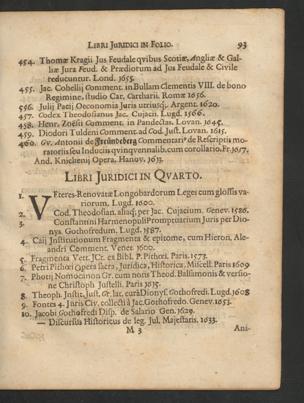 LIBRI JURIDICI IN FOLIO. 93
454. Thomæ Kragii Jus Feudale qvibus Scotiæ, Angliæ & Gal-
liæ Jura Feud. & Prædiorum ad Jus Feudale & Civile
reducuntur. Lond. 1655.
455. Jac. Cohellij Comment. in Bullam Clementis VIII. de bono
Regimine. studio Car. Cartharii. Romæ 1656.
456. Julij Patij Oeconomia Juris utriusq; Argent. 1620.
457. Codex Theodosianus Jac. Cujacii. Lugd. 1566.
458. Henr. Zoësii Comment. in Pandectas. Lovan. 1645.
459. Diodori Tuldeni Comment. ad Cod. Just. Lovan. 1615.
460. Gv. Antonii de Freündeberg Commentari⁹ de Rescriptis mo-
ratoriis seu Induciis qvinqvennalib. cum corollario. Fr. 1657.
And. Knichenij Opera. Hanov. 1633.
LIBRI JURIDICI IN QVARTO.
1. VEteres-Renovatæ Longobardorum Leges cum glossis va-
riorum. Lugd. 1600.
2. Cod. Theodosian. aliiq; per Jac. Cujacium. Genev. 1586.
3. Constantini Harmenopuli Promptuarium Juris per Dio-
nys. Gothofredum. Lugd. 1587.
4. Caij Institutionum Fragmenta & epitome, cum Hieron. Ale-
andri Comment. Venet. 1600.
5. Fragmenta Vett. JCt. ex Bibl. P. Pithœi. Paris. 1573.
6. Petri Pithœi Opera sacra, Juridica, Historica, Miscell. Paris 1609
7. Photij Nomocanon Gr. cum notis Theod. Balsamonis & versio-
ne Christoph Justelli. Paris 1615.
8. Theoph. Instit. Just. Gr. lat. curâ Dionys. Gothofredi. Lugd. 1608
9. Fontes 4. Juris Civ. collecti à Jac. Gothofredo. Genev. 1653.
10. Jacobi Gothofredi Disp. de Salario Gen. 1629.
— Discursus Historicus de leg. Jul. Majestatis. 1633.
M 3 Ani-